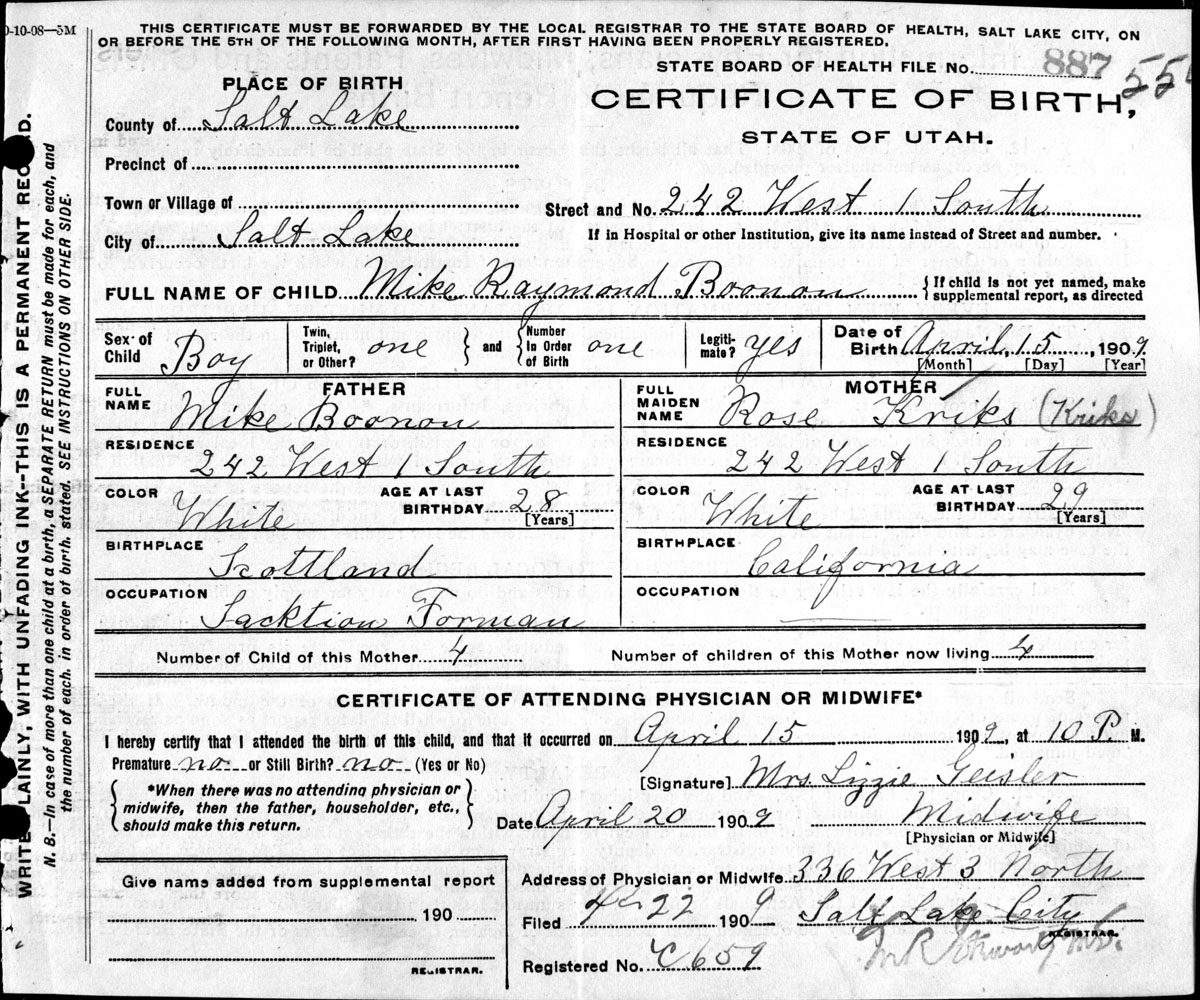 0-10-08—5M
THIS CERTIFICATE MUST BE FORWARDED BY THE LOCAL REGISTRAR TO THE STATE BOARD OF HEALTH, SALT LAKE CITY, ON
OR BEFORE THE 5TH OF THE FOLLOWING MONTH, AFTER FIRST HAVING BEEN PROPERLY REGISTERED.
STATE BOARD OF HEALTH FILE No. 887
PLACE OF BIRTH
CERTIFICATE OF BIRTH,
STATE OF UTAH.
County of Salt Lake
Precinct of
Town or Village of
Street and No. 242 West 1 South
City of Salt Lake
If in Hospital or other Institution, give its name instead of Street and number.
FULL NAME OF CHILD Mike Raymond Boonon
If child is not yet named, make
supplemental report, as directed
Sex of Child Boy
Twin, Triplet, or Other? one
and
Number In Order of Birth one
Legiti-mate? yes
Date of Birth April 15, 1909
[Month] [Day] [Year]
FATHER
FULL NAME Mike Boonon
RESIDENCE
242 West 1 South
COLOR White
AGE AT LAST BIRTHDAY 28
[Years]
BIRTHPLACE
Scottland
OCCUPATION
Sacktion Forman
MOTHER
FULL MAIDEN NAME Rose Kriks (Kriks)
RESIDENCE
242 West 1 South
COLOR White
AGE AT LAST BIRTHDAY 29
[Years]
BIRTHPLACE
California
OCCUPATION
Number of Child of this Mother 4
Number of children of this Mother now living 4
CERTIFICATE OF ATTENDING PHYSICIAN OR MIDWIFE*
I hereby certify that I attended the birth of this child, and that it occurred on April 15 1909, at 10 P. M.
Premature no or Still Birth? no (Yes or No)
*When there was no attending physician or
midwife, then the father, householder, etc.,
should make this return.
[Signature] Mrs. Lizzie Geisler
Date April 20 1909
Midwife
[Physician or Midwife]
Give name added from supplemental report
190
REGISTRAR.
Address of Physician or Midwife 336 West 3 North
Salt Lake City
Filed 4 22 1909
REGISTRAR.
Registered No. C659
WRITE PLAINLY, WITH UNFADING INK--THIS IS A PERMANENT RECORD.
N. B.—In case of more than one child at a birth, a SEPARATE RETURN must be made for each, and
the number of each, in order of birth, stated. SEE INSTRUCTIONS ON OTHER SIDE.